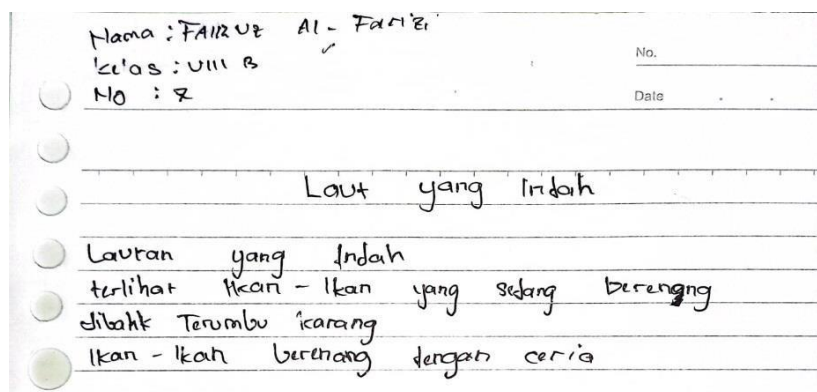 Nama : FAIRUZ Al - Farizi
kelas : VIII B
No : 7
No.
Date . .
Laut yang Indah
Lautan yang Indah
terlihat Ikan - Ikan yang sedang berenang
dibalik Terumbu karang
Ikan - Ikan berenang dengan ceria